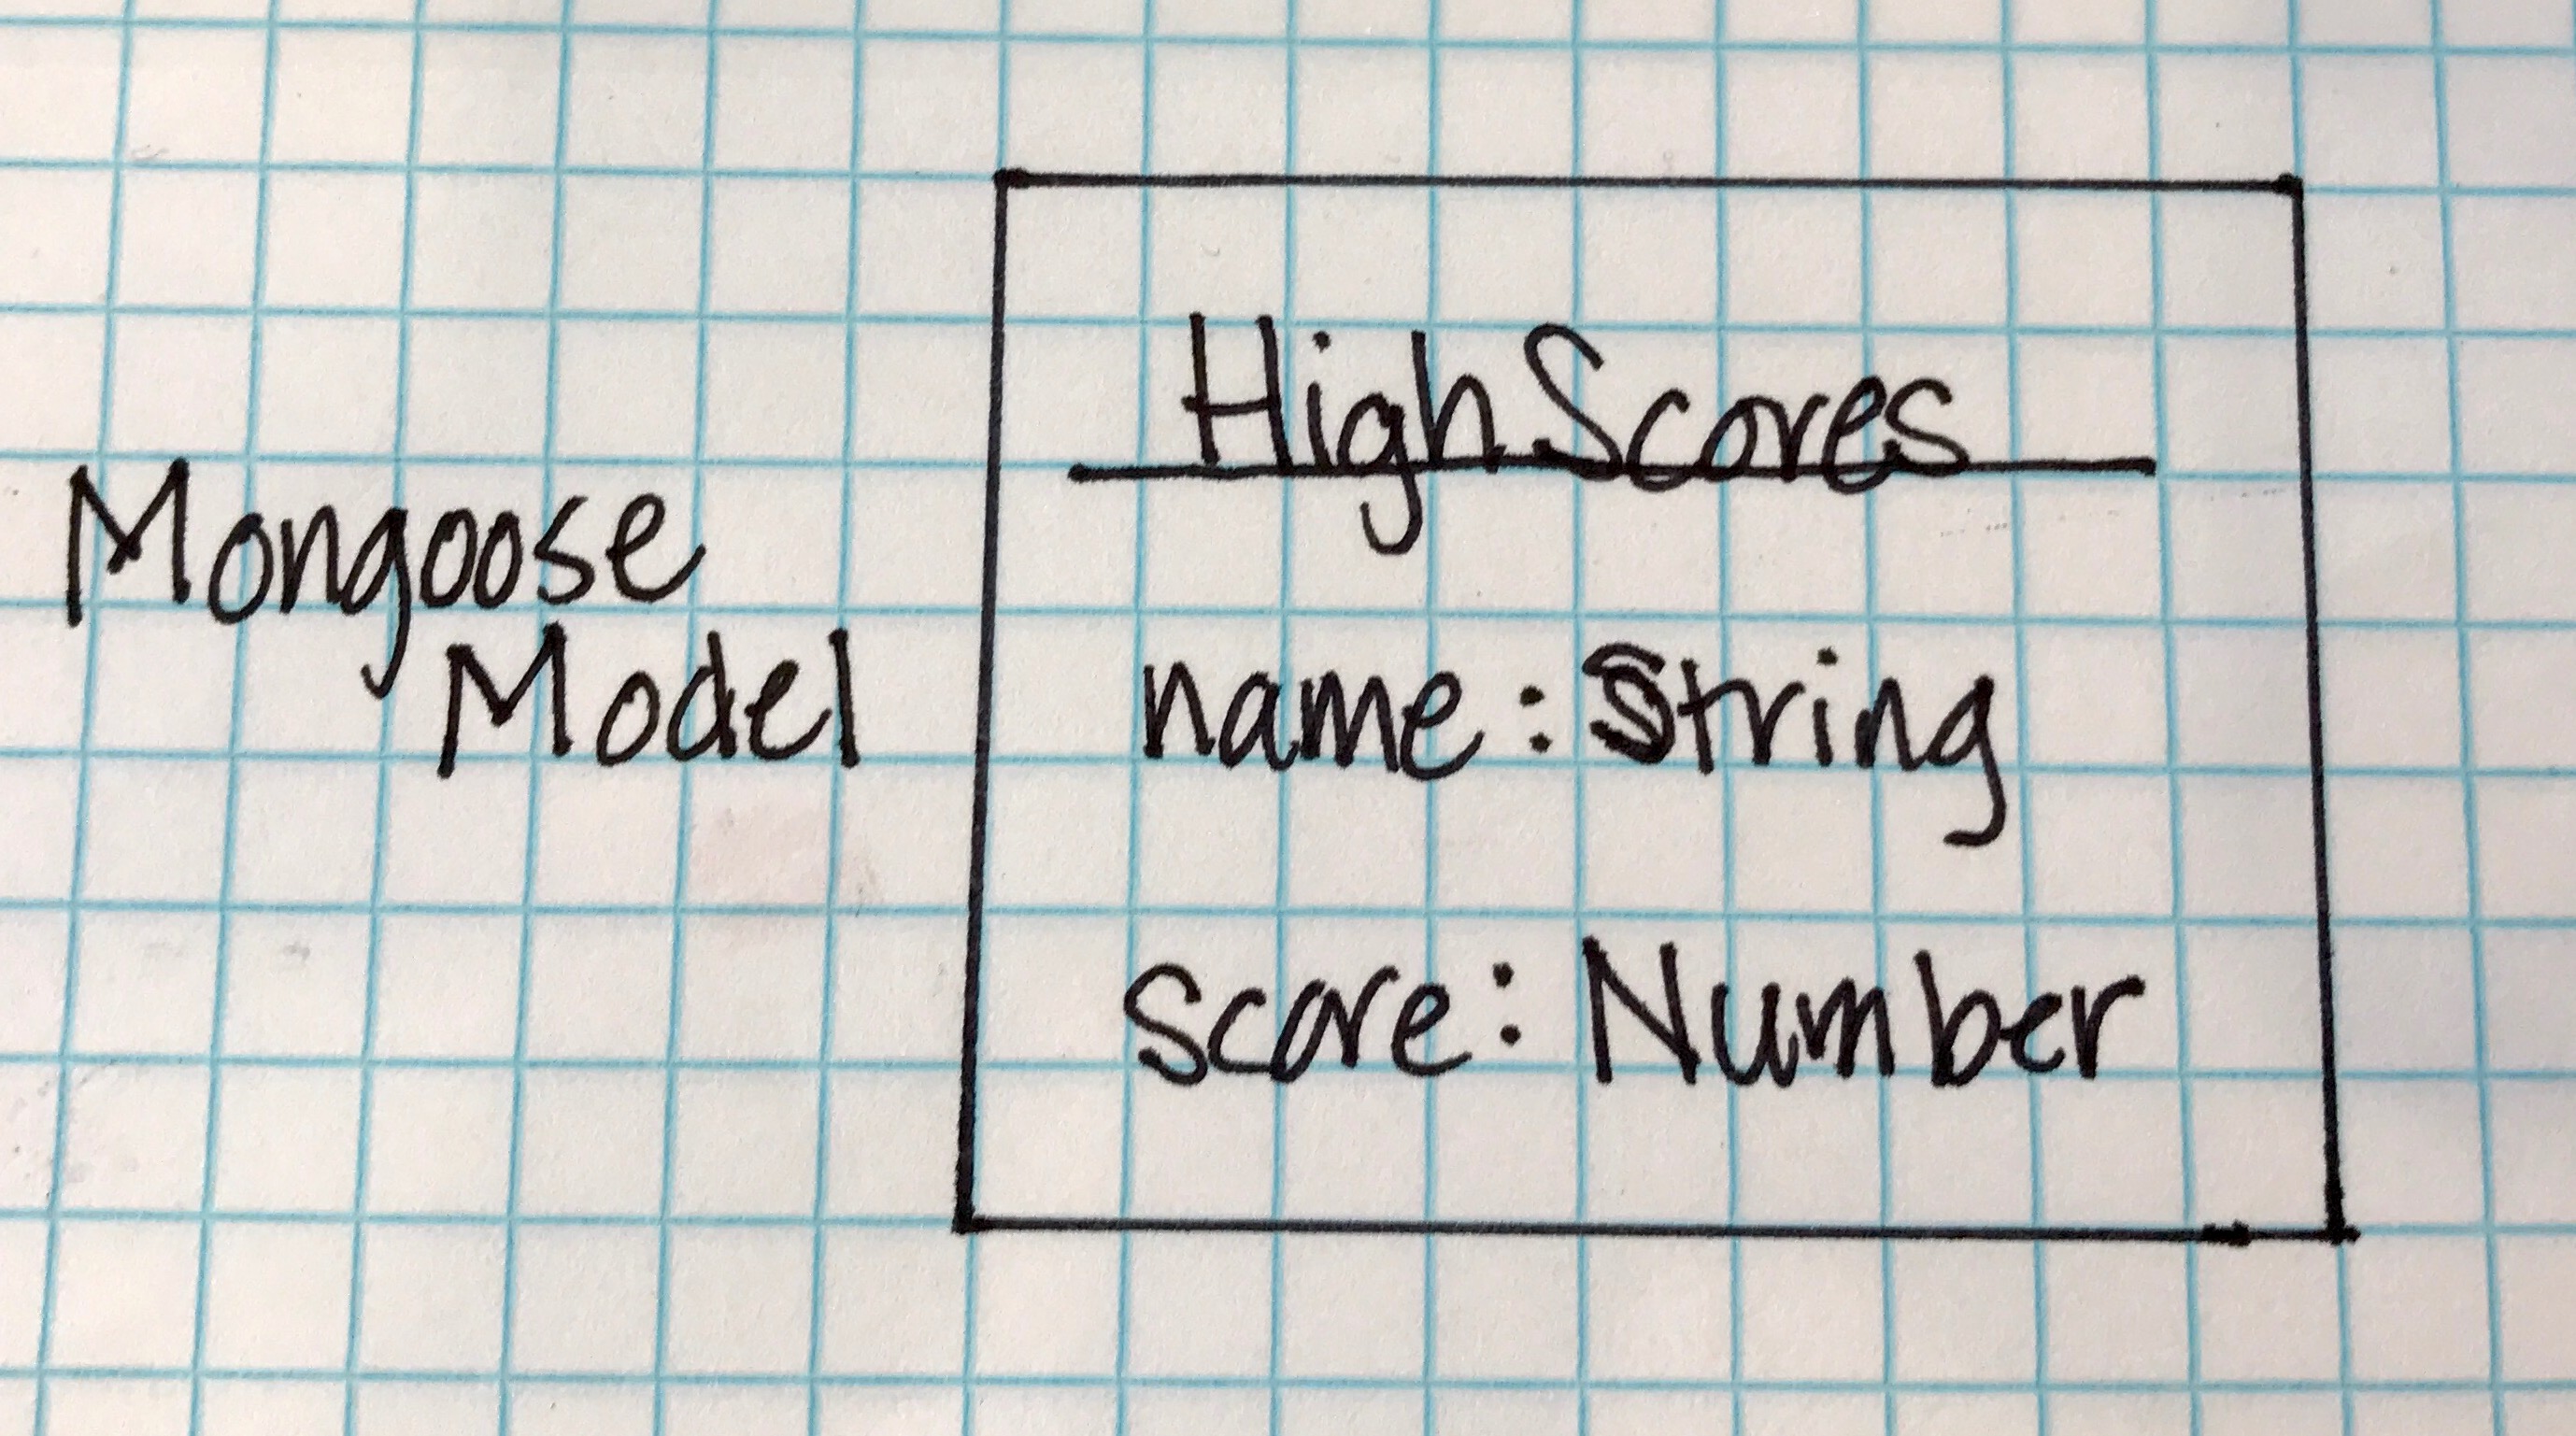 Mongoose
Model
HighScores
name: String
score: Number